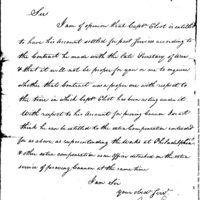 Sir
I am of opinion that Capt. Eliot is entitled
to have his account settled for past Services according
to the Contract he made with the late Secretary of War
& that it will not be proper for you or me to enquire
whether that Contract was a proper one with respect to
the time in which Capt. Eliot has been acting under it.
With respect to his account for proving Cannon I do not
think he can be entitled to the extra Compensation contended
for as above, as superintending the works at Philadelphia
& other extra compensation as an officer entitled on the extra
service of proving Cannon at the same time
I am Sir
your obed. Serv.